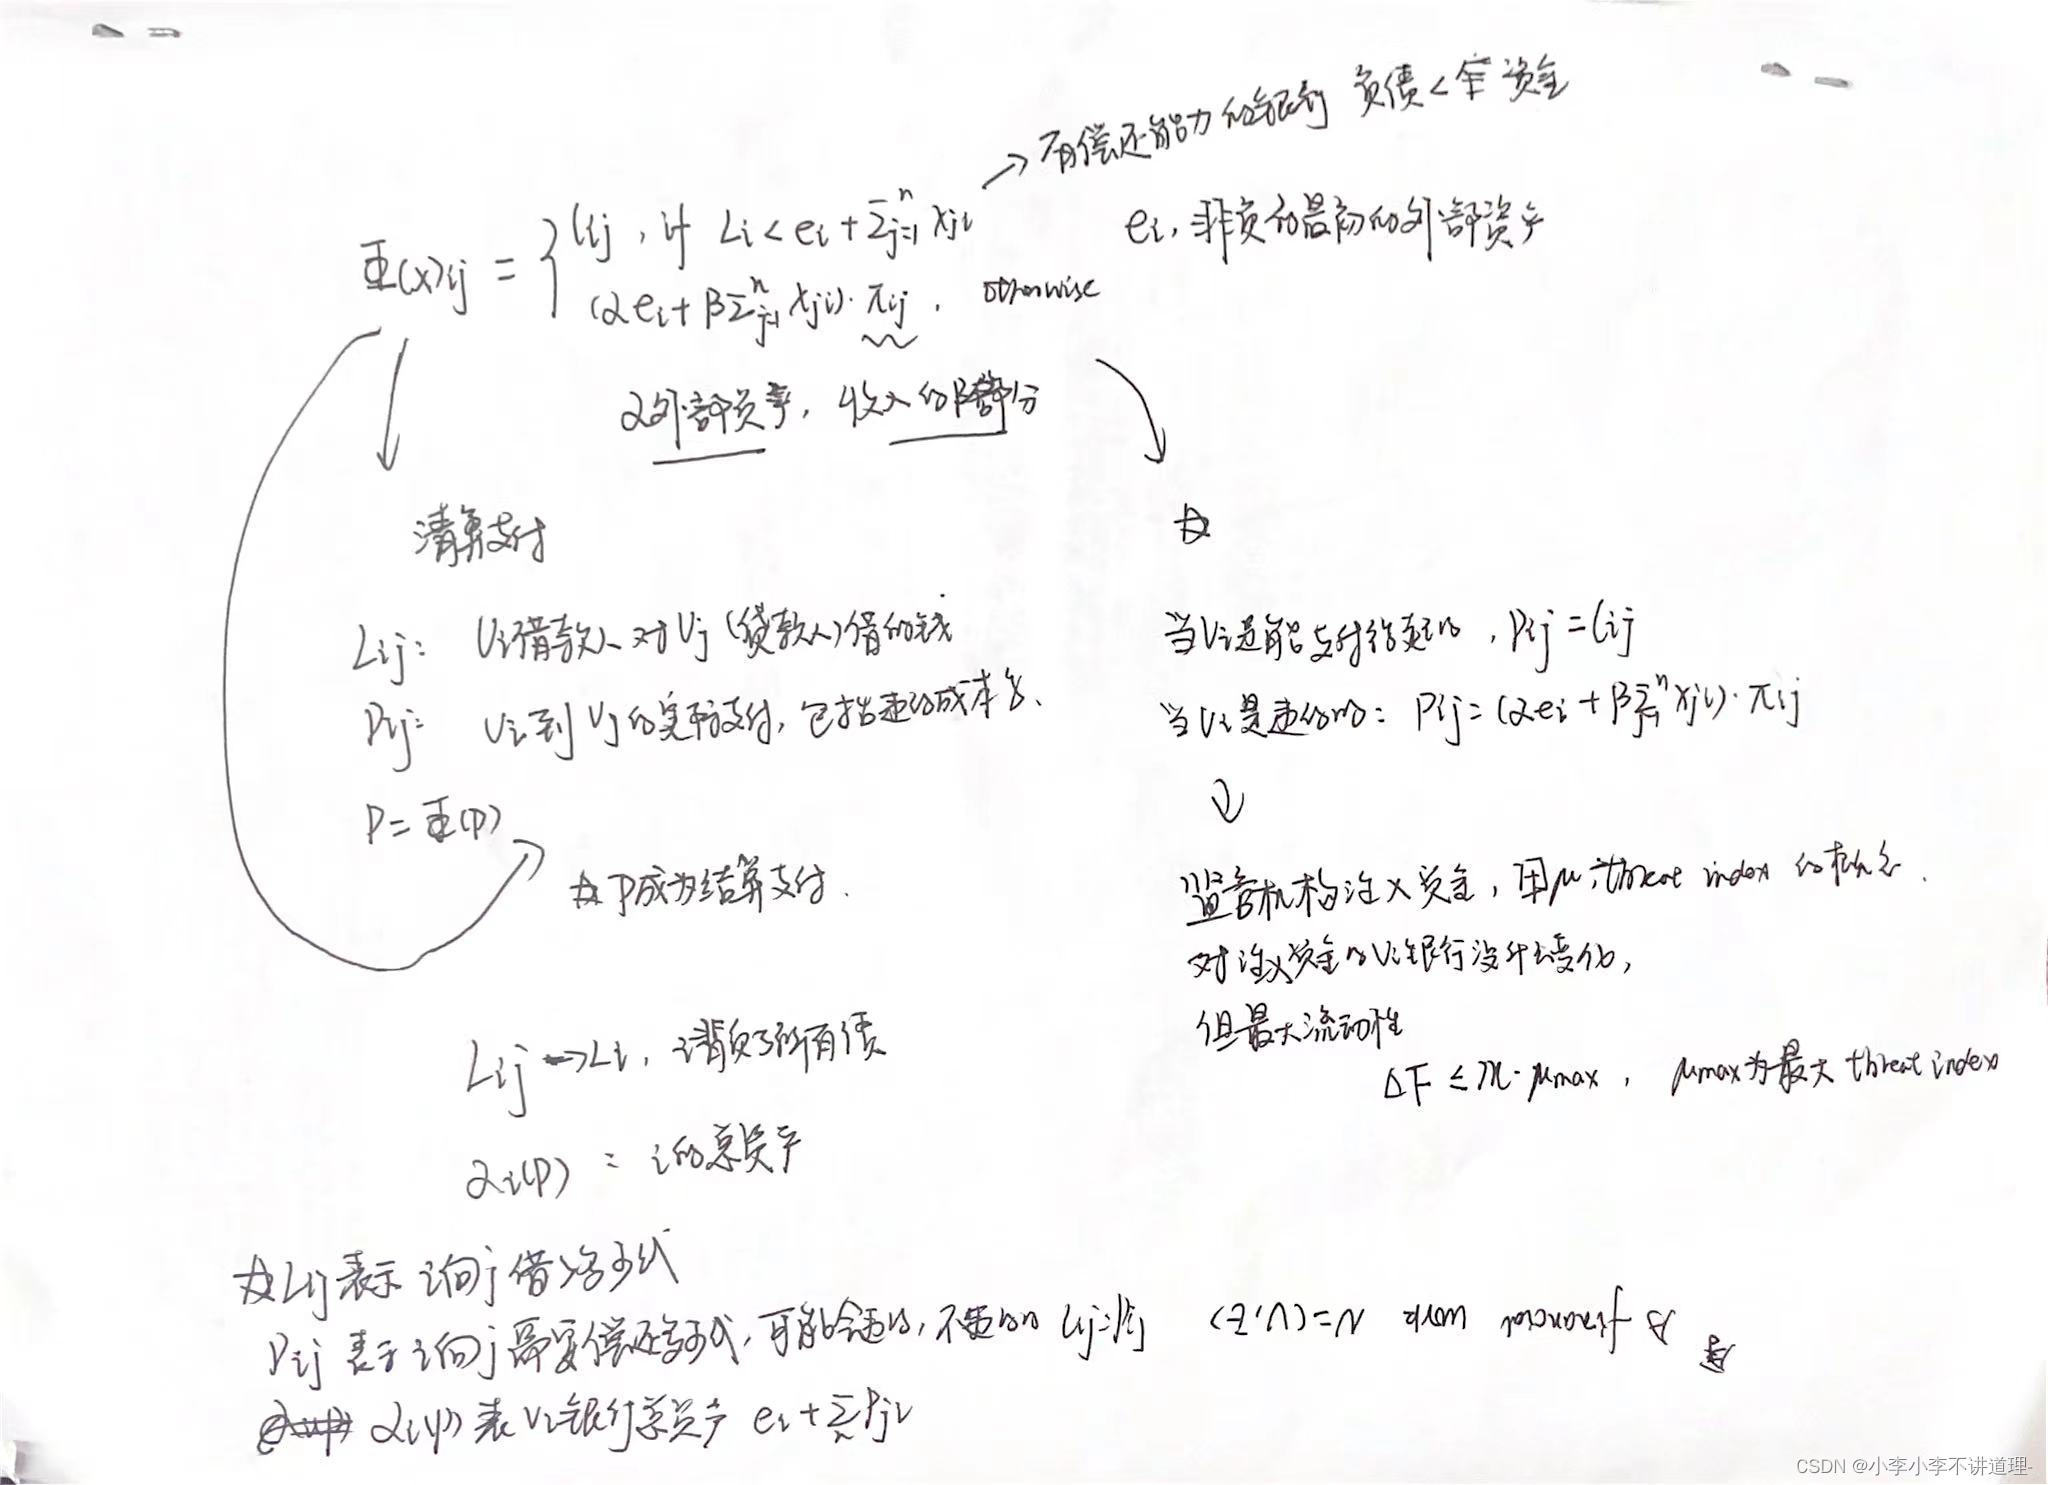 → 有偿还能力的银行 负债<牢资金
Φ(x)ij = { lij , if Li < ei + Σⁿj=1 xji
(αei + βΣⁿj=1 xji)·πij , otherwise
ei, 非负的最初的外部资产
α外部资产, 收入的β部分
清算支付
Lij: Vi借款人对Vj(贷款人)借的钱
Pij: Vi到Vj的实际支付, 包括违约成本等、
P = Φ(P)
故P成为结算支付.
Lij → Li, i背负了所有债
αi(P) : i的总资产
故
当Vi是能支付结束的, Pij = lij
当Vi是违约的: Pij = (αei + βΣⁿj=1 xji)·πij
↓
监管机构注入资金, 用μ: threat index 的概念.
对注入资金的Vi银行没什么变化,
但最大流动性
ΔF ≤ m·μmax , μmax为最大threat index
故Lij表示 i向j借多少钱
Pij 表示i向j需要偿还多少钱, 可能会违约, 不违约的 Lij=Pij
αi(P)表Vi银行总资产 ei + Σn Pji
A financial work N=(V,E)
CSDN @小李小李不讲道理-